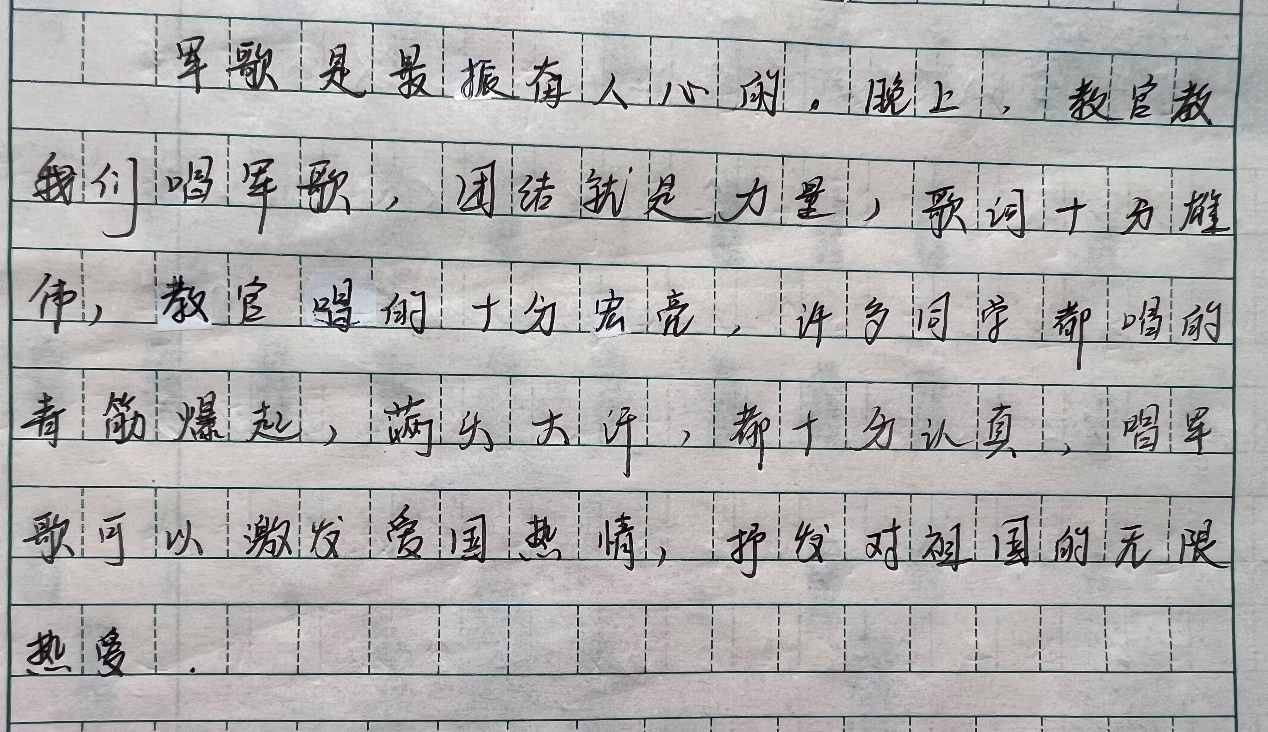 军歌是最振奋人心的。晚上，教官教
我们唱军歌，团结就是力量，歌词十分雄
伟，教官唱的十分宏亮，许多同学都唱的
青筋爆起，满头大汗，都十分认真，唱军
歌可以激发爱国热情，抒发对祖国的无限
热爱.